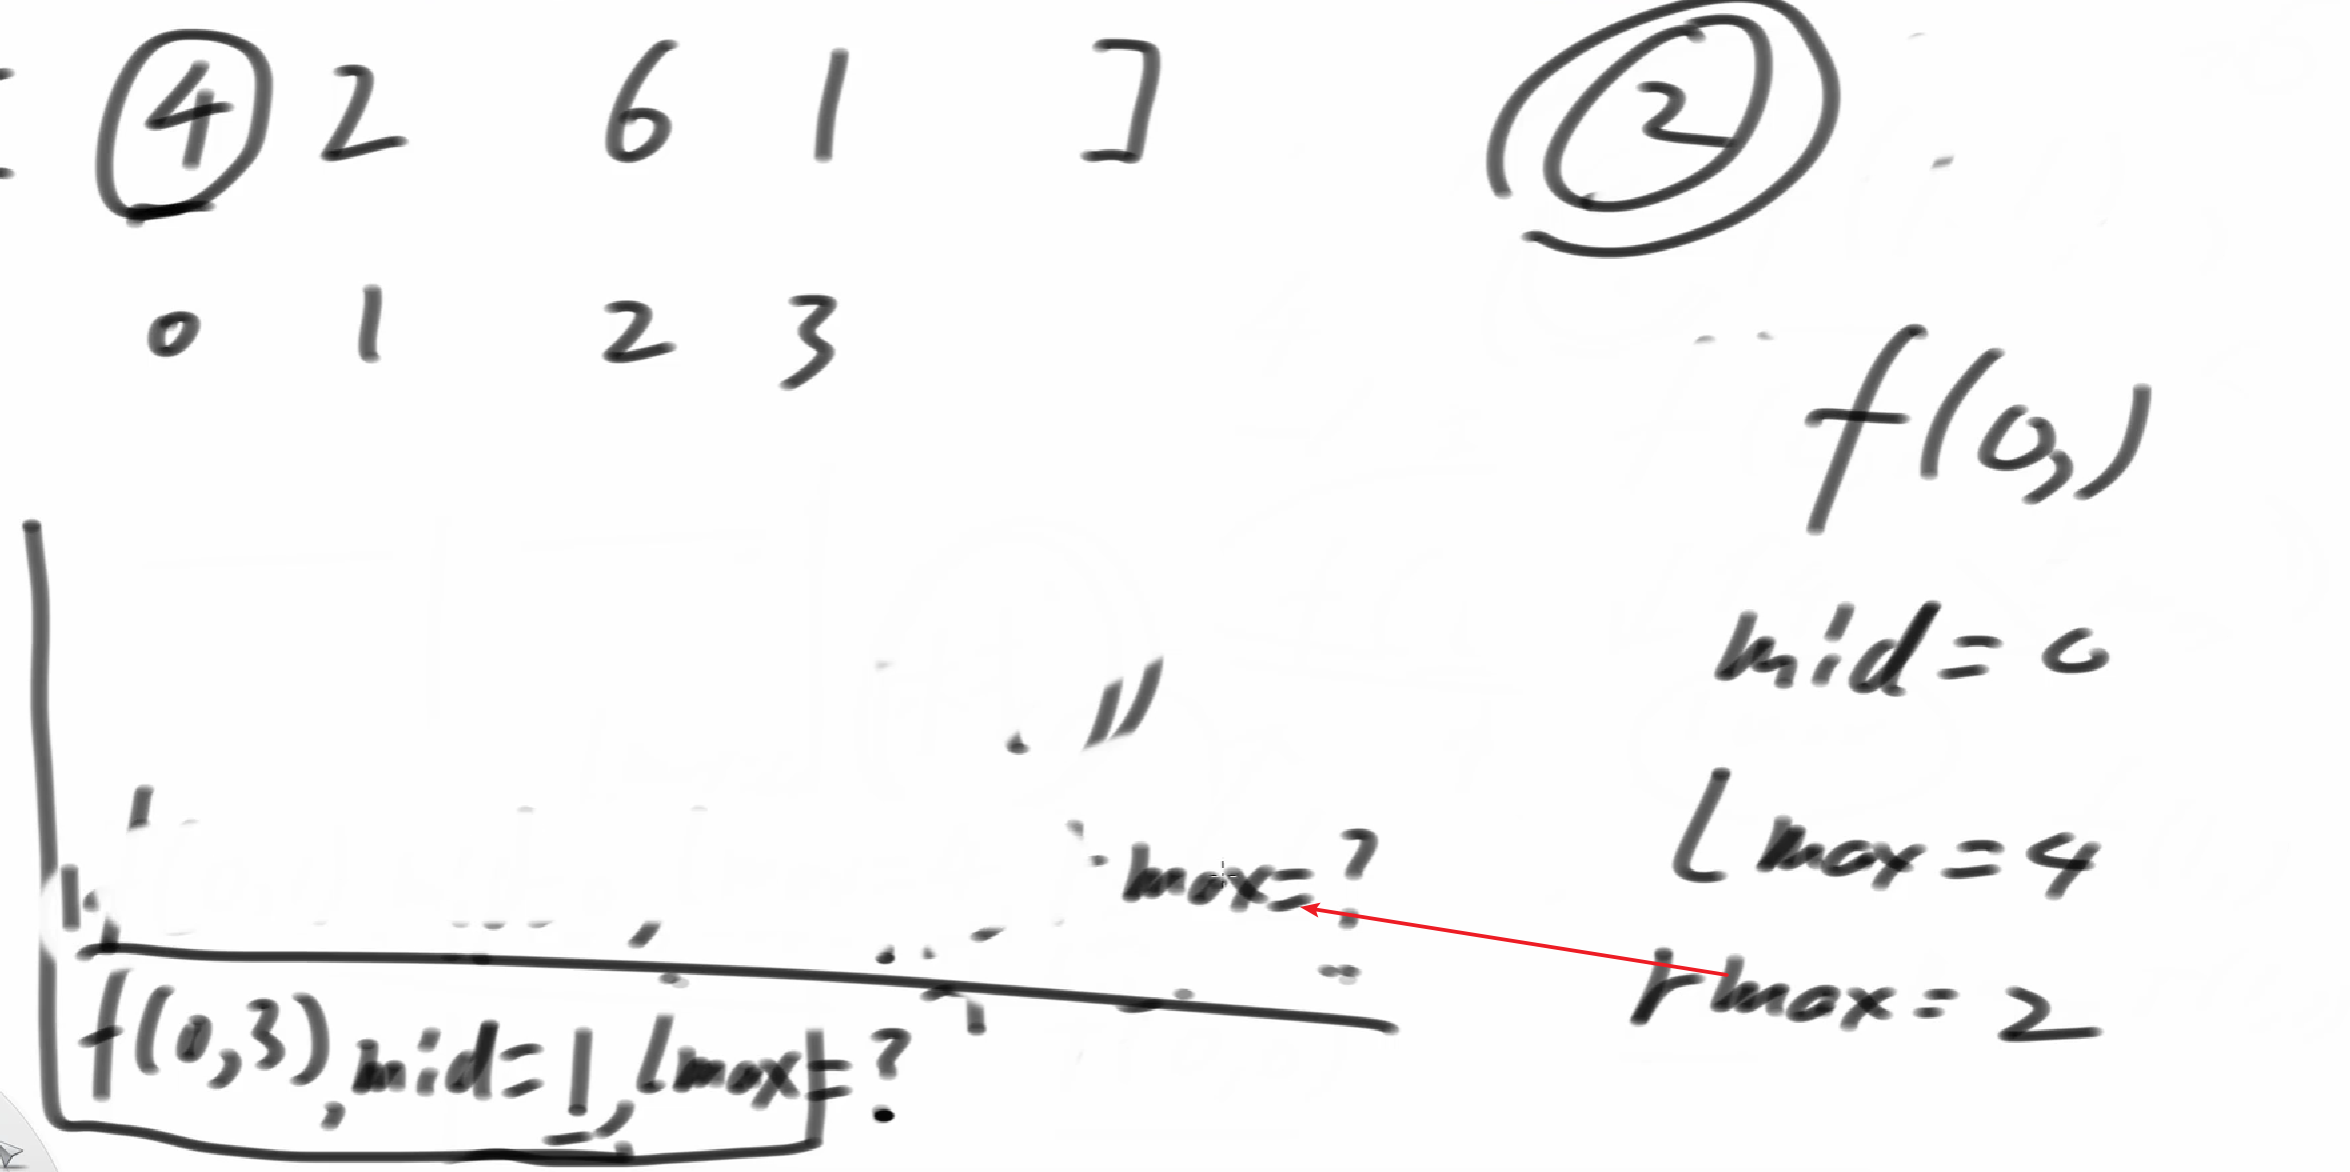 4 2 6 1 ]
2
0 1 2 3
f(0,)
mid=0
lmax=4
max=?
rmax=2
f(0,3), mid=1, lmax=?